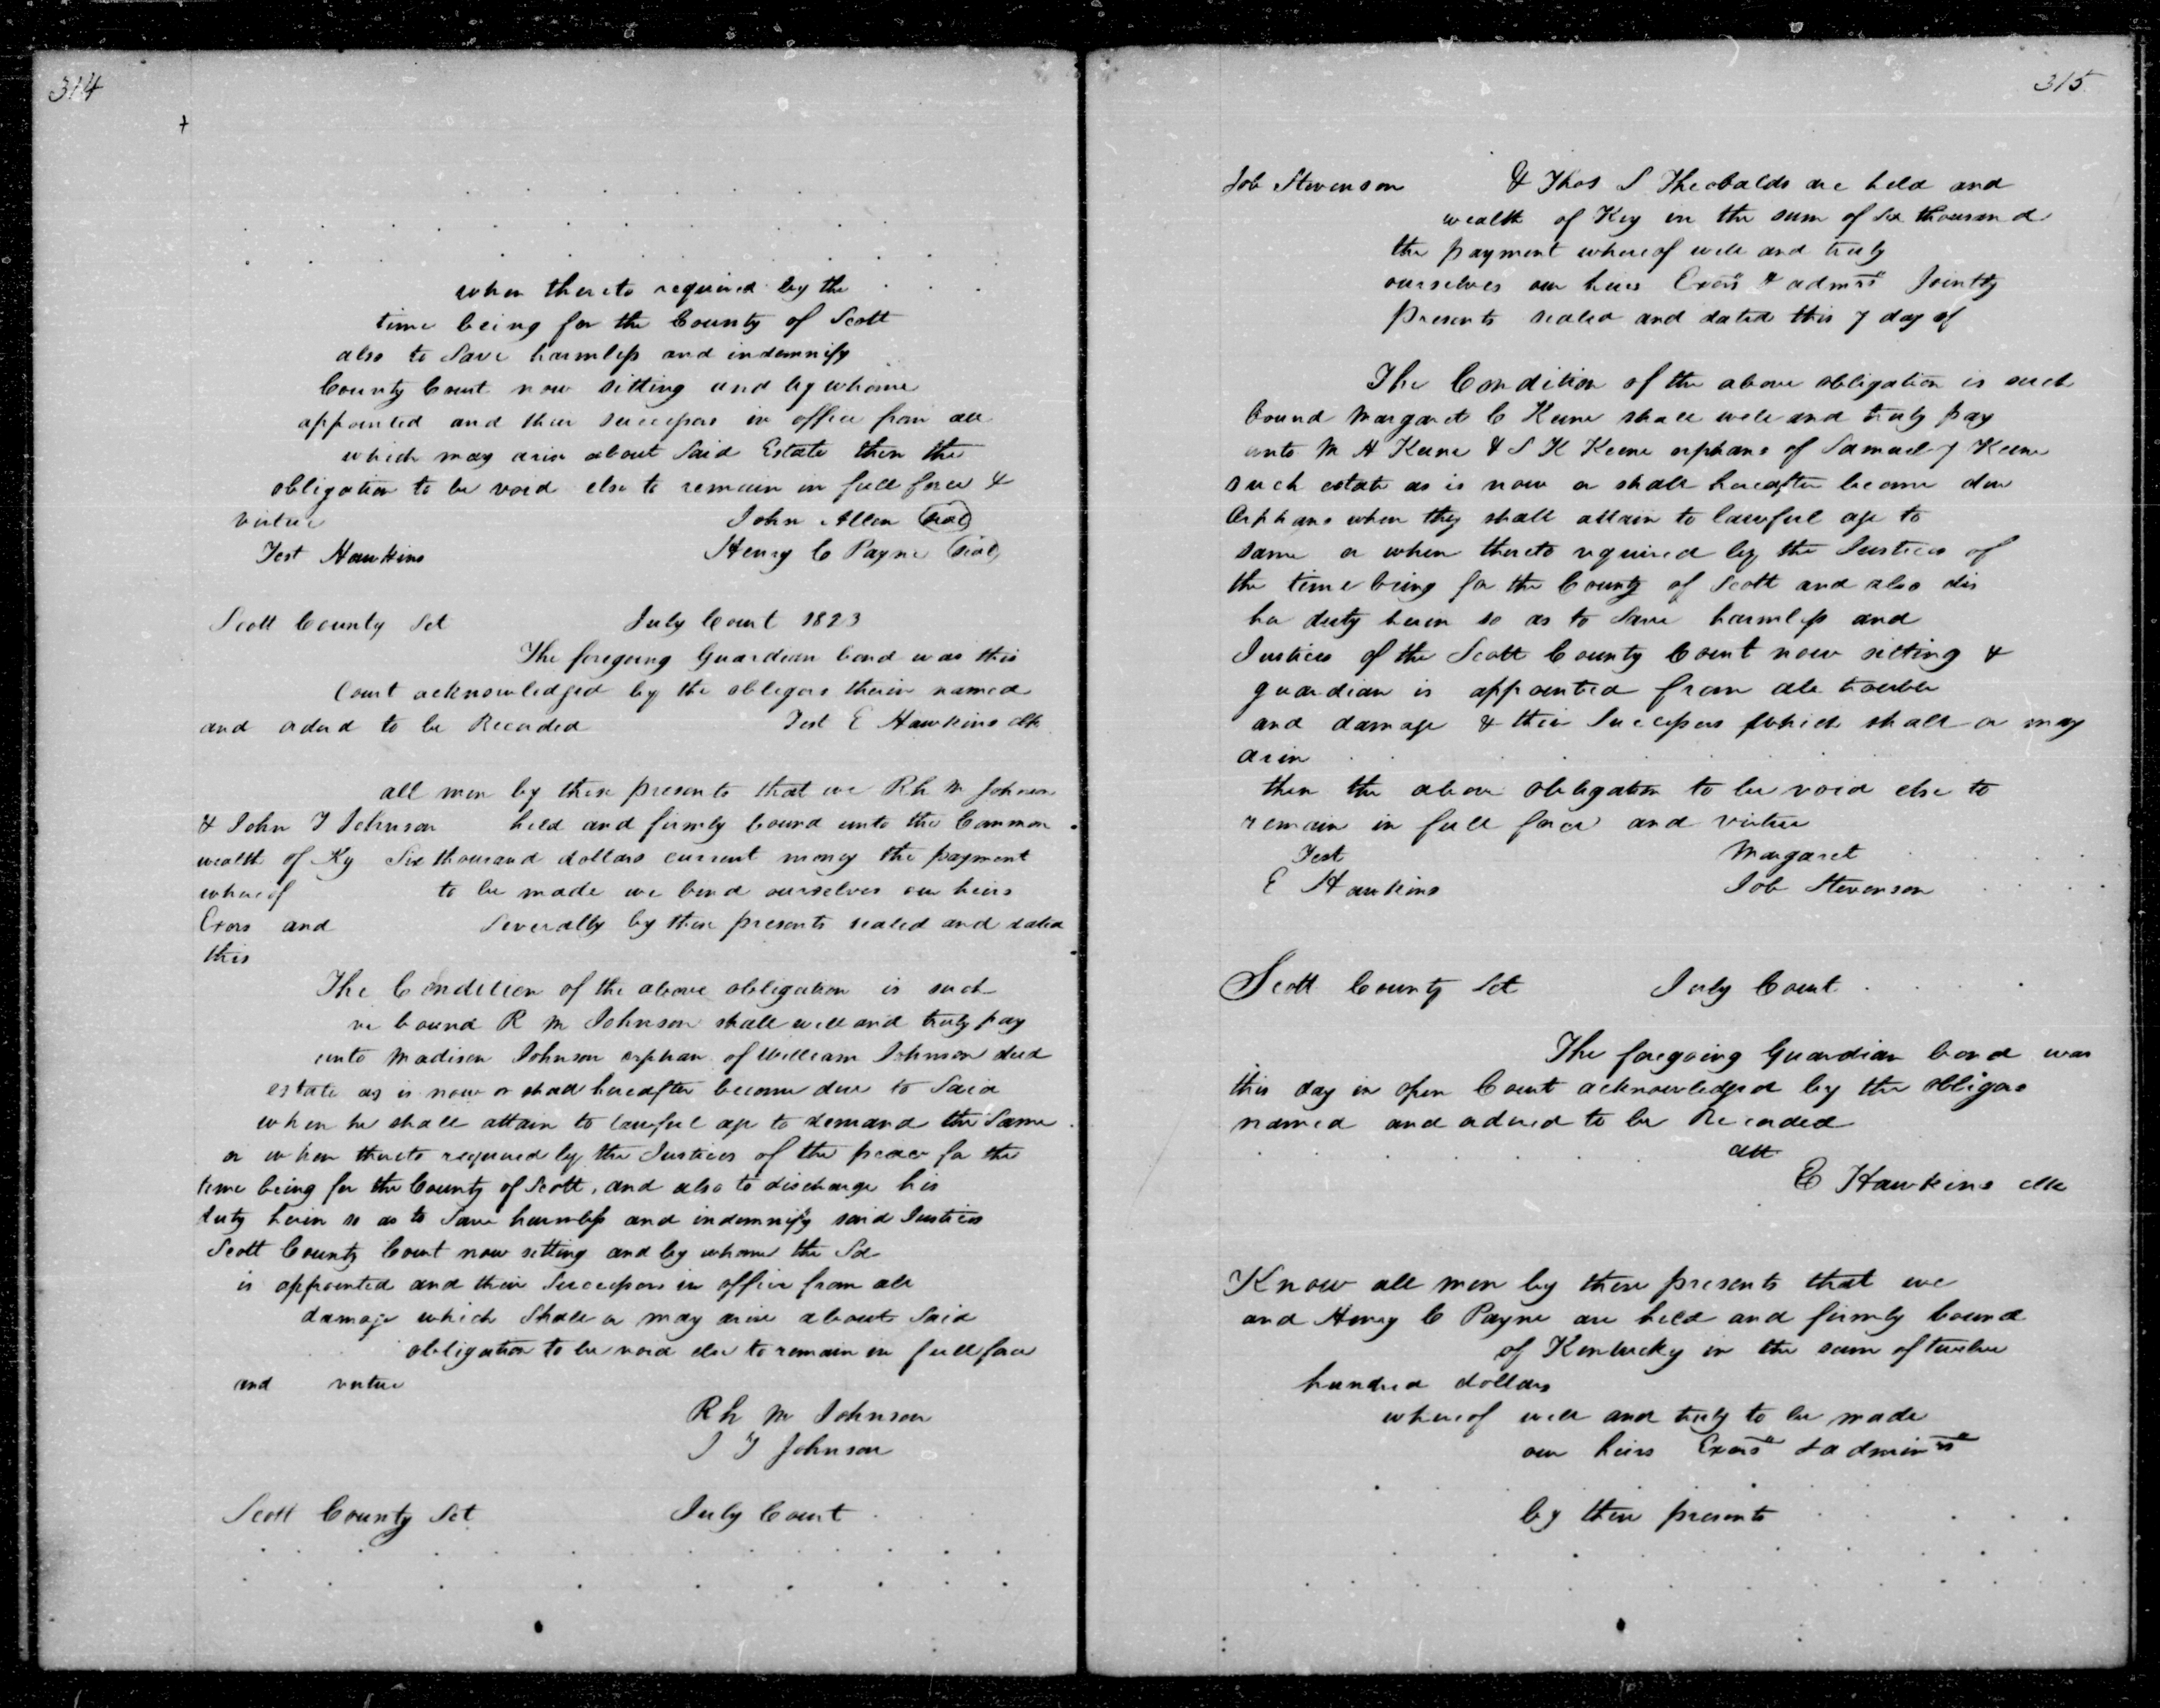 314
when thereto required by the
time being for the County of Scott
also to Save harmless and indemnify
County Court now sitting and by whome
appointed and their successors in office from all
which may arise about Said Estate then the
obligation to be void else to remain in full force &
virtue John Allen (seal)
Test Hawkins Henry C Payne (seal)
Scott County Sct July Court 1823
The foregoing Guardian bond was this
Court acknowledged by the obligors therin named
and ordered to be Recorded Test E Hawkins clk
all men by these presents that we Rh M Johnson
& John T Johnson held and firmly bound unto the Common
wealth of Ky Six thousand dollars current money the payment
whereof to be made we bind ourselves our heirs
Exors and Severally by these presents sealed and dated
this
The Condition of the above obligation is such
ve bound R M Johnson shall well and truly pay
unto Madison Johnson orphan of William Johnson decd
estate as is now or shall hereafter become due to Said
when he shall attain to lawful age to demand the Same
or when thereto required by the Justices of the peace for the
time being for the County of Scott, and also to discharge his
duty herin so as to Save harmless and indemnify said Justices
Scott County Court now setting and by whome the Sd
is appointed and their Successors in office from all
damage which Shall or may arise about Said
obligation to be void else to remain in full force
and virtue
Rh M Johnson
J T Johnson
Scott County Sct July Court
315
Job Stevenson & Thos S Theobalds are held and
wealth of Key in the sum of Six thousand
the payment whereof well and truly
ourselves our heirs Exors & admrs Jointly
presents sealed and dated this 7 day of
The Condition of the above obligation is such
bound Margaret C Keene shall well and truly pay
unto M A Keene & S K Keene orphans of Samuel J Keene
such estate as is now or shall hereafter become due
Orphans when they shall attain to lawful age to
same or when thereto required by the Justices of
the time being for the County of Scott and also dis
her duty herin so as to Save harmless and
Justices of the Scott County Court now sitting &
guardian is appointed from all trouble
and damage & their Successors which shall or may
arise
then the above obligation to be void else to
remain in full force and virtue
Test Margaret
E Hawkins Job Stevenson
Scott County Sct July Court
The foregoing Guardian bond was
this day in open Court acknowledged by the obligors
named and ordered to be Recorded
att
E Hawkins clk
Know all men by these presents that we
and Henry C Payne are held and firmly bound
of Kentucky in the sum of twelve
hundred dollars
whereof well and truly to be made
our heirs Exors & admin rs
by these presents